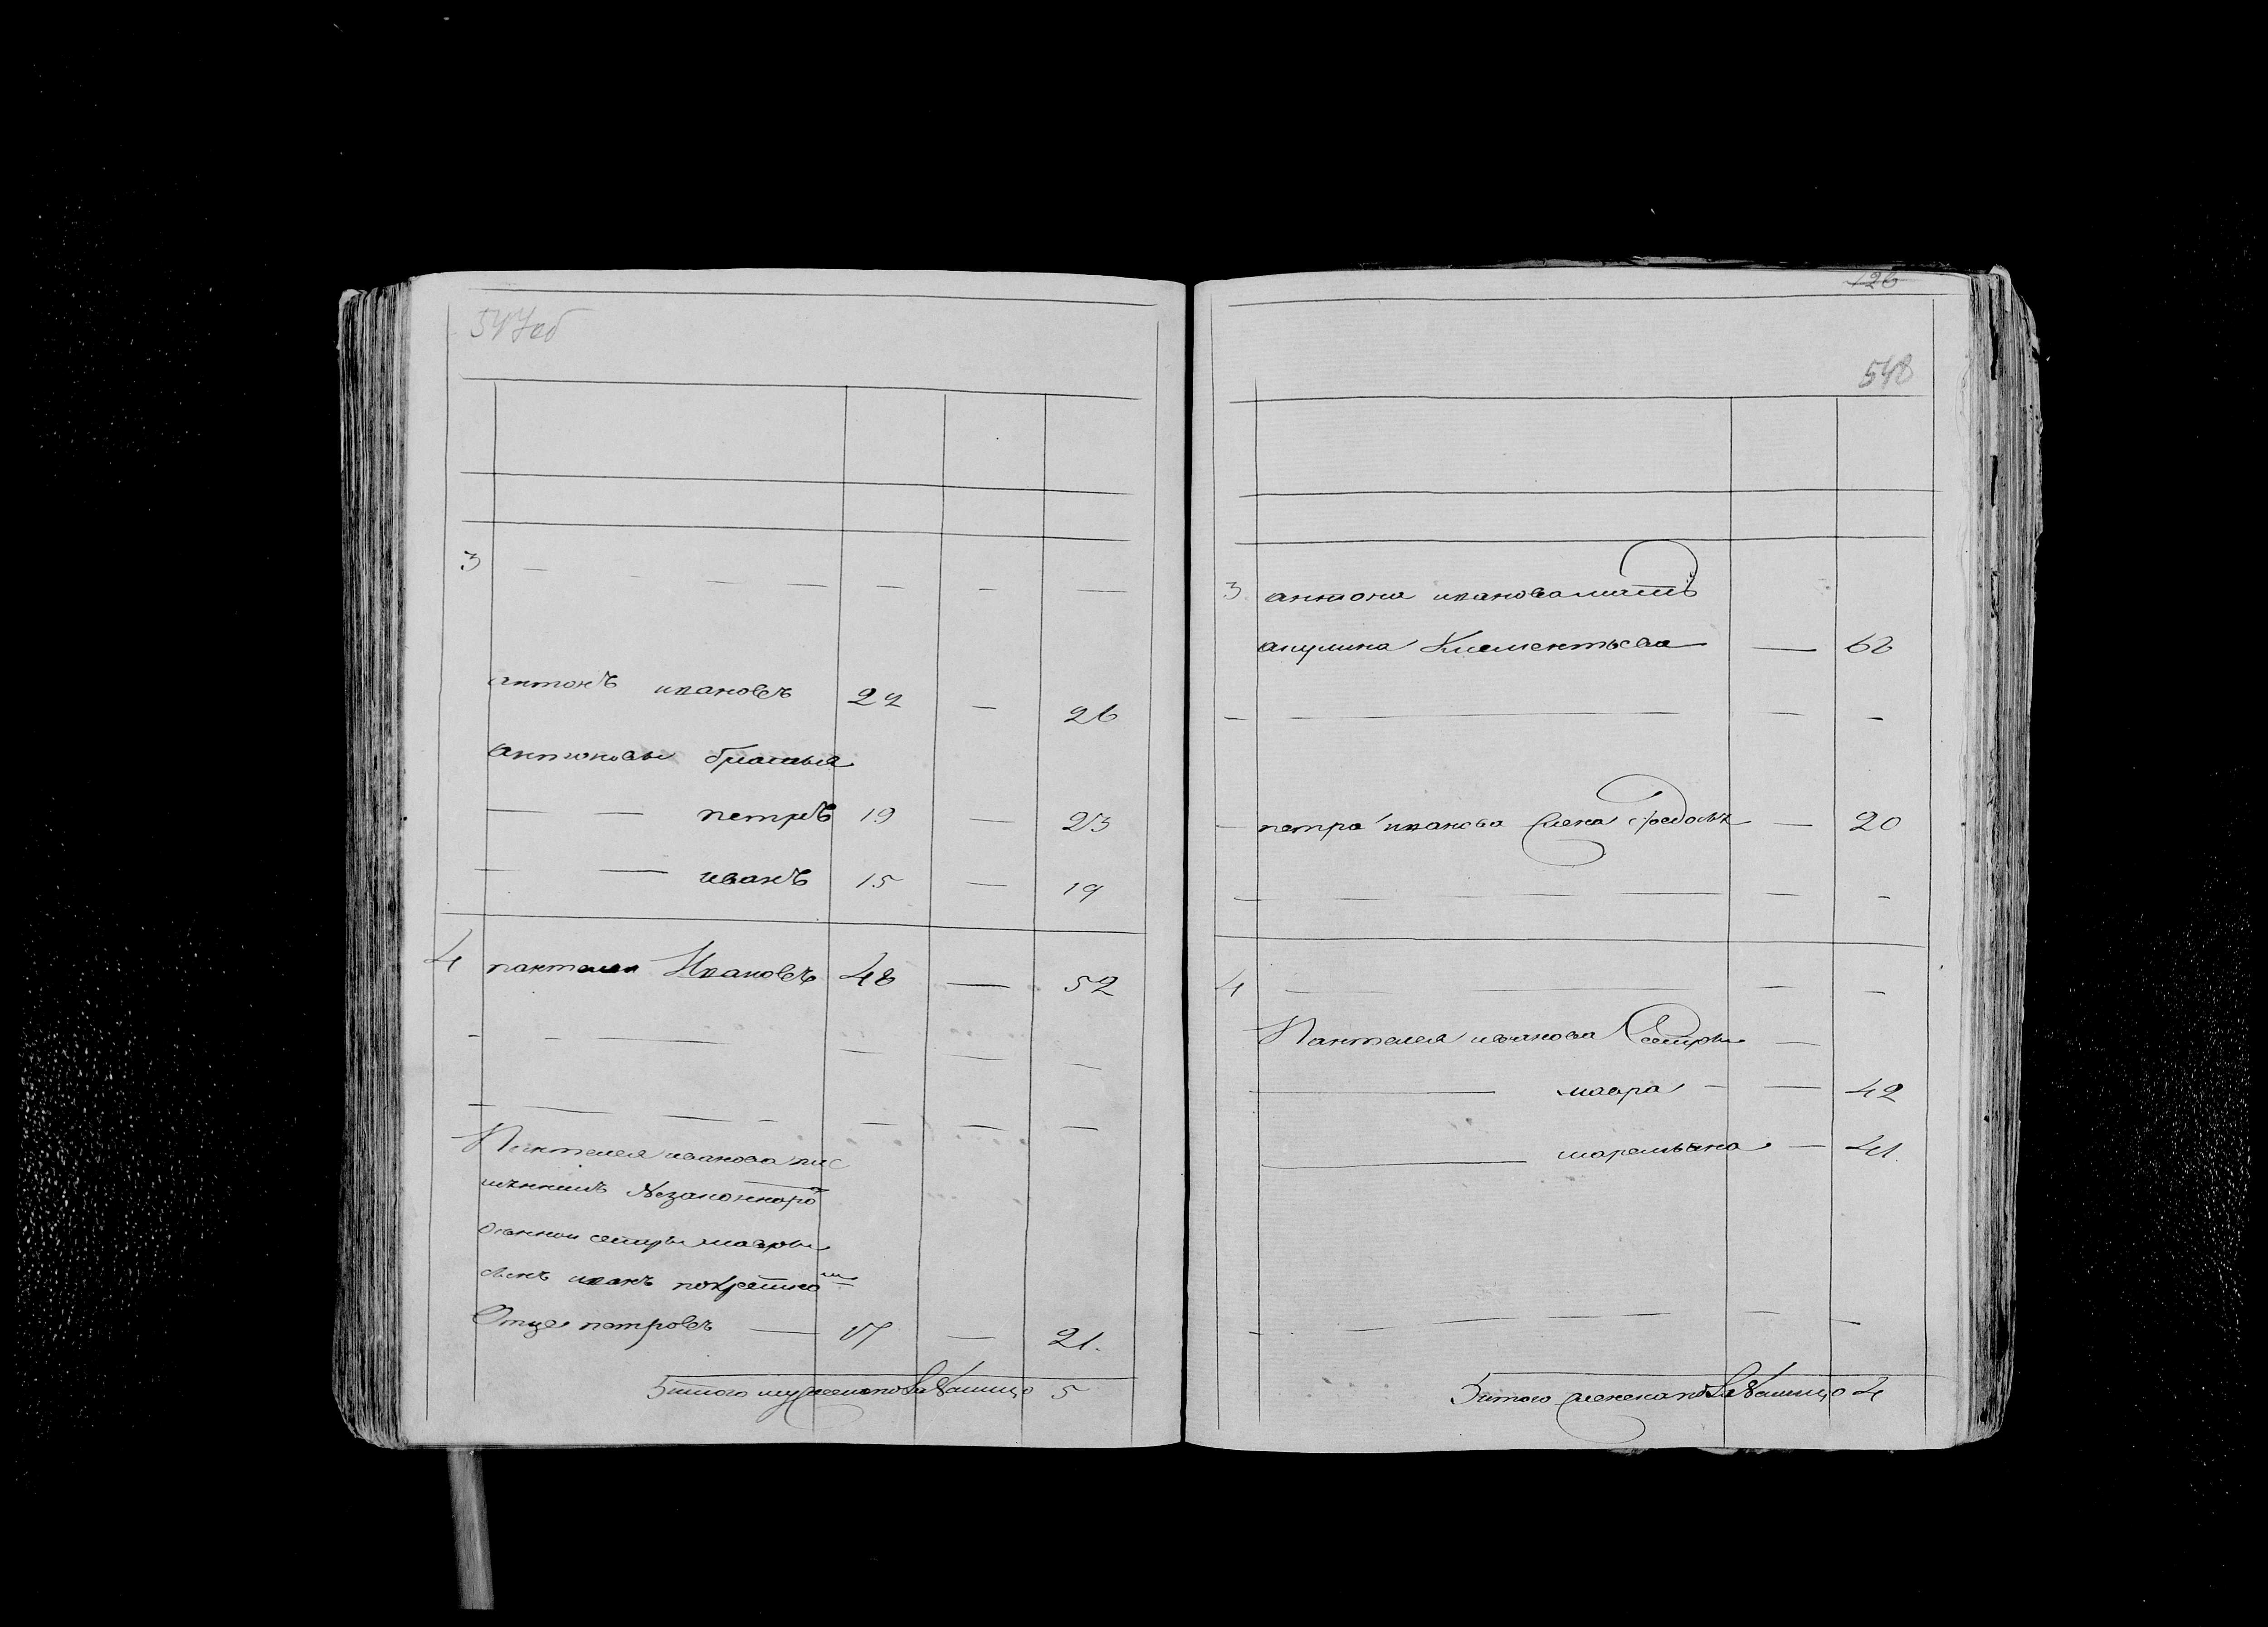 547об
3
антонъ ивановъ 22 — 26
антоновы братья
— — петръ 19 — 23
— — иванъ 15 — 19
4 пантелей Ивановъ 48 — 52
Пантелея иванова
незаконноро
сестры мавры
сынъ иванъ покрестно
Отцу петровъ — 17 — 21.
итого мужеска налицо 5
126
548
3 антона иванова мать
акулина Клементьева — 62
петра иванова жена — 20
4 — — — —
Пантелея иванова Сестры —
— мавра — — 42
— маремьяна — 41
итого женска налицо 4